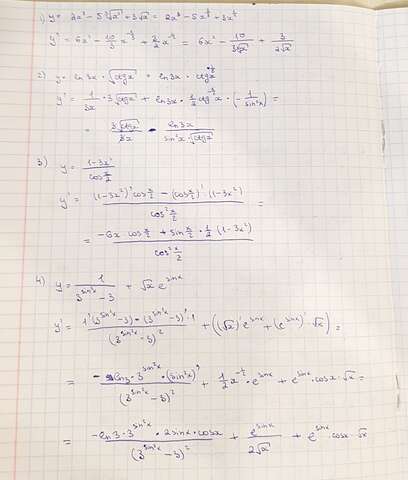 1) y = 2x³ - 5∛x² + 3√x = 2x³ - 5x^(2/3) + 3x^(1/2)
y' = 6x² - 10/3 x^(-1/3) + 3/2 x^(-1/2) = 6x² - 10/(3∛x) + 3/(2√x)
2) y = ln3x · √ctgx = ln3x · ctgx^(1/2)
y' = 1/(3x) · 3√ctgx + ln3x · 1/2 ctg^(-1/2)x · (-1/sin²x) =
= 3√ctgx/(3x) - ln3x/(sin²x·√ctgx)
3) y = (1-3x²)/(cos x/2)
y' = ((1-3x²)' cos x/2 - (cos x/2)' (1-3x²))/(cos² x/2) =
= (-6x cos x/2 + sin x/2 · 1/2 (1-3x²))/(cos² x/2)
4) y = 1/(3^(sin²x) - 3) + √x e^(sinx)
y' = (1'(3^(sin²x) - 3) - (3^(sin²x) - 3)' · 1)/(3^(sin²x) - 3)² + ((√x)' e^(sinx) + (e^(sinx))' · √x) =
= (- ln3 · 3^(sin²x) · (sin²x)')/(3^(sin²x) - 3)² + 1/2 x^(-1/2) · e^(sinx) + e^(sinx) · cosx · √x =
= (-ln3 · 3^(sin²x) · 2sinx · cosx)/(3^(sin²x) - 3)² + e^(sinx)/(2√x) + e^(sinx) · cosx · √x